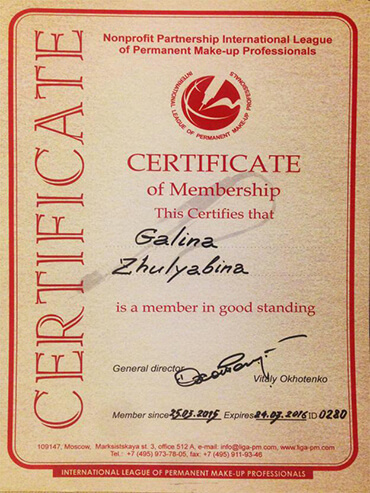 CERTIFICATE
Nonprofit Partnership International League
of Permanent Make-up Professionals
INTERNATIONAL LEAGUE OF PERMANENT MAKE-UP PROFESSIONALS
CERTIFICATE
of Membership
This Certifies that
Galina
Zhulyabina
is a member in good standing
General director
Vitaly Okhotenko
Member since 25.03.2015 Expires 24.07.2016 ID 0280
109147, Moscow, Marksistskaya st. 3, office 512 A, e-mail: info@liga-pm.com, www.liga-pm.com
Tel.: +7 (495) 973-78-05, fax: +7 (495) 911-93-46
INTERNATIONAL LEAGUE OF PERMANENT MAKE-UP PROFESSIONALS